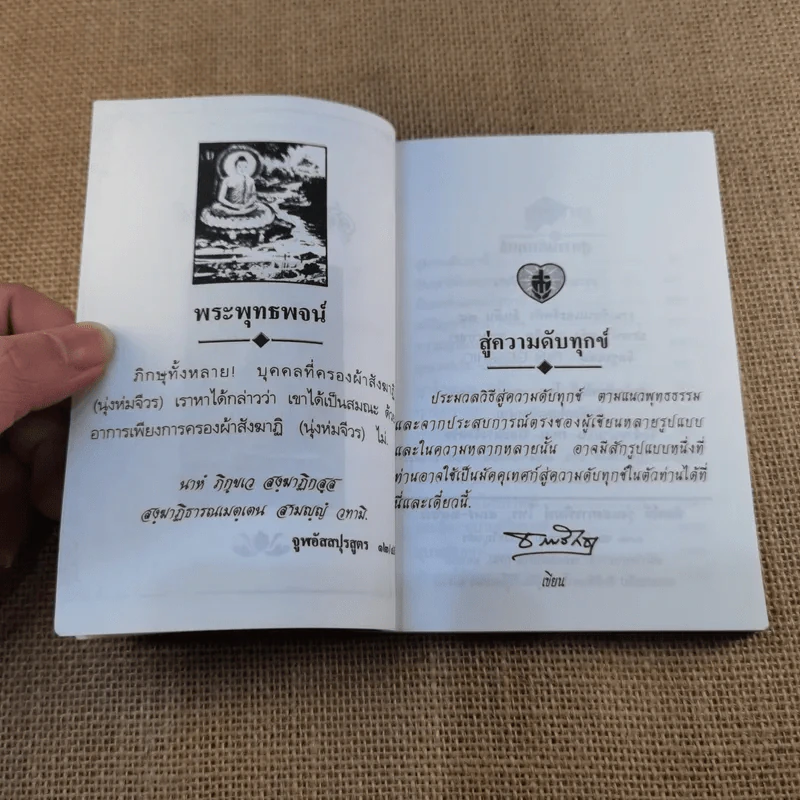 พระพุทธพจน์
ภิกษุทั้งหลาย! บุคคลที่ครองผ้าสังฆาฏิ
(นุ่งห่มจีวร) เราหาได้กล่าวว่า เขาได้เป็นสมณะ ด้วย
อาการเพียงการครองผ้าสังฆาฏิ (นุ่งห่มจีวร) ไม่.
นาหํ ภิกฺขเว สงฺฆาฏิกสฺส
สงฺฆาฏิธารณเมตฺเตน สามญฺญํ วทามิ.
จูฬอัสสปุรสูตร ๑๒/
สู่ความดับทุกข์
ประมวลวิธีสู่ความดับทุกข์ ตามแนวพุทธธรรม
และจากประสบการณ์ตรงของผู้เขียนหลายรูปแบบ
และในความหลากหลายนั้น อาจมีสักรูปแบบหนึ่งที่
ท่านอาจใช้เป็นมัคคุเทศก์สู่ความดับทุกข์ในตัวท่านได้ที่
นี่และเดี๋ยวนี้.
เขียน